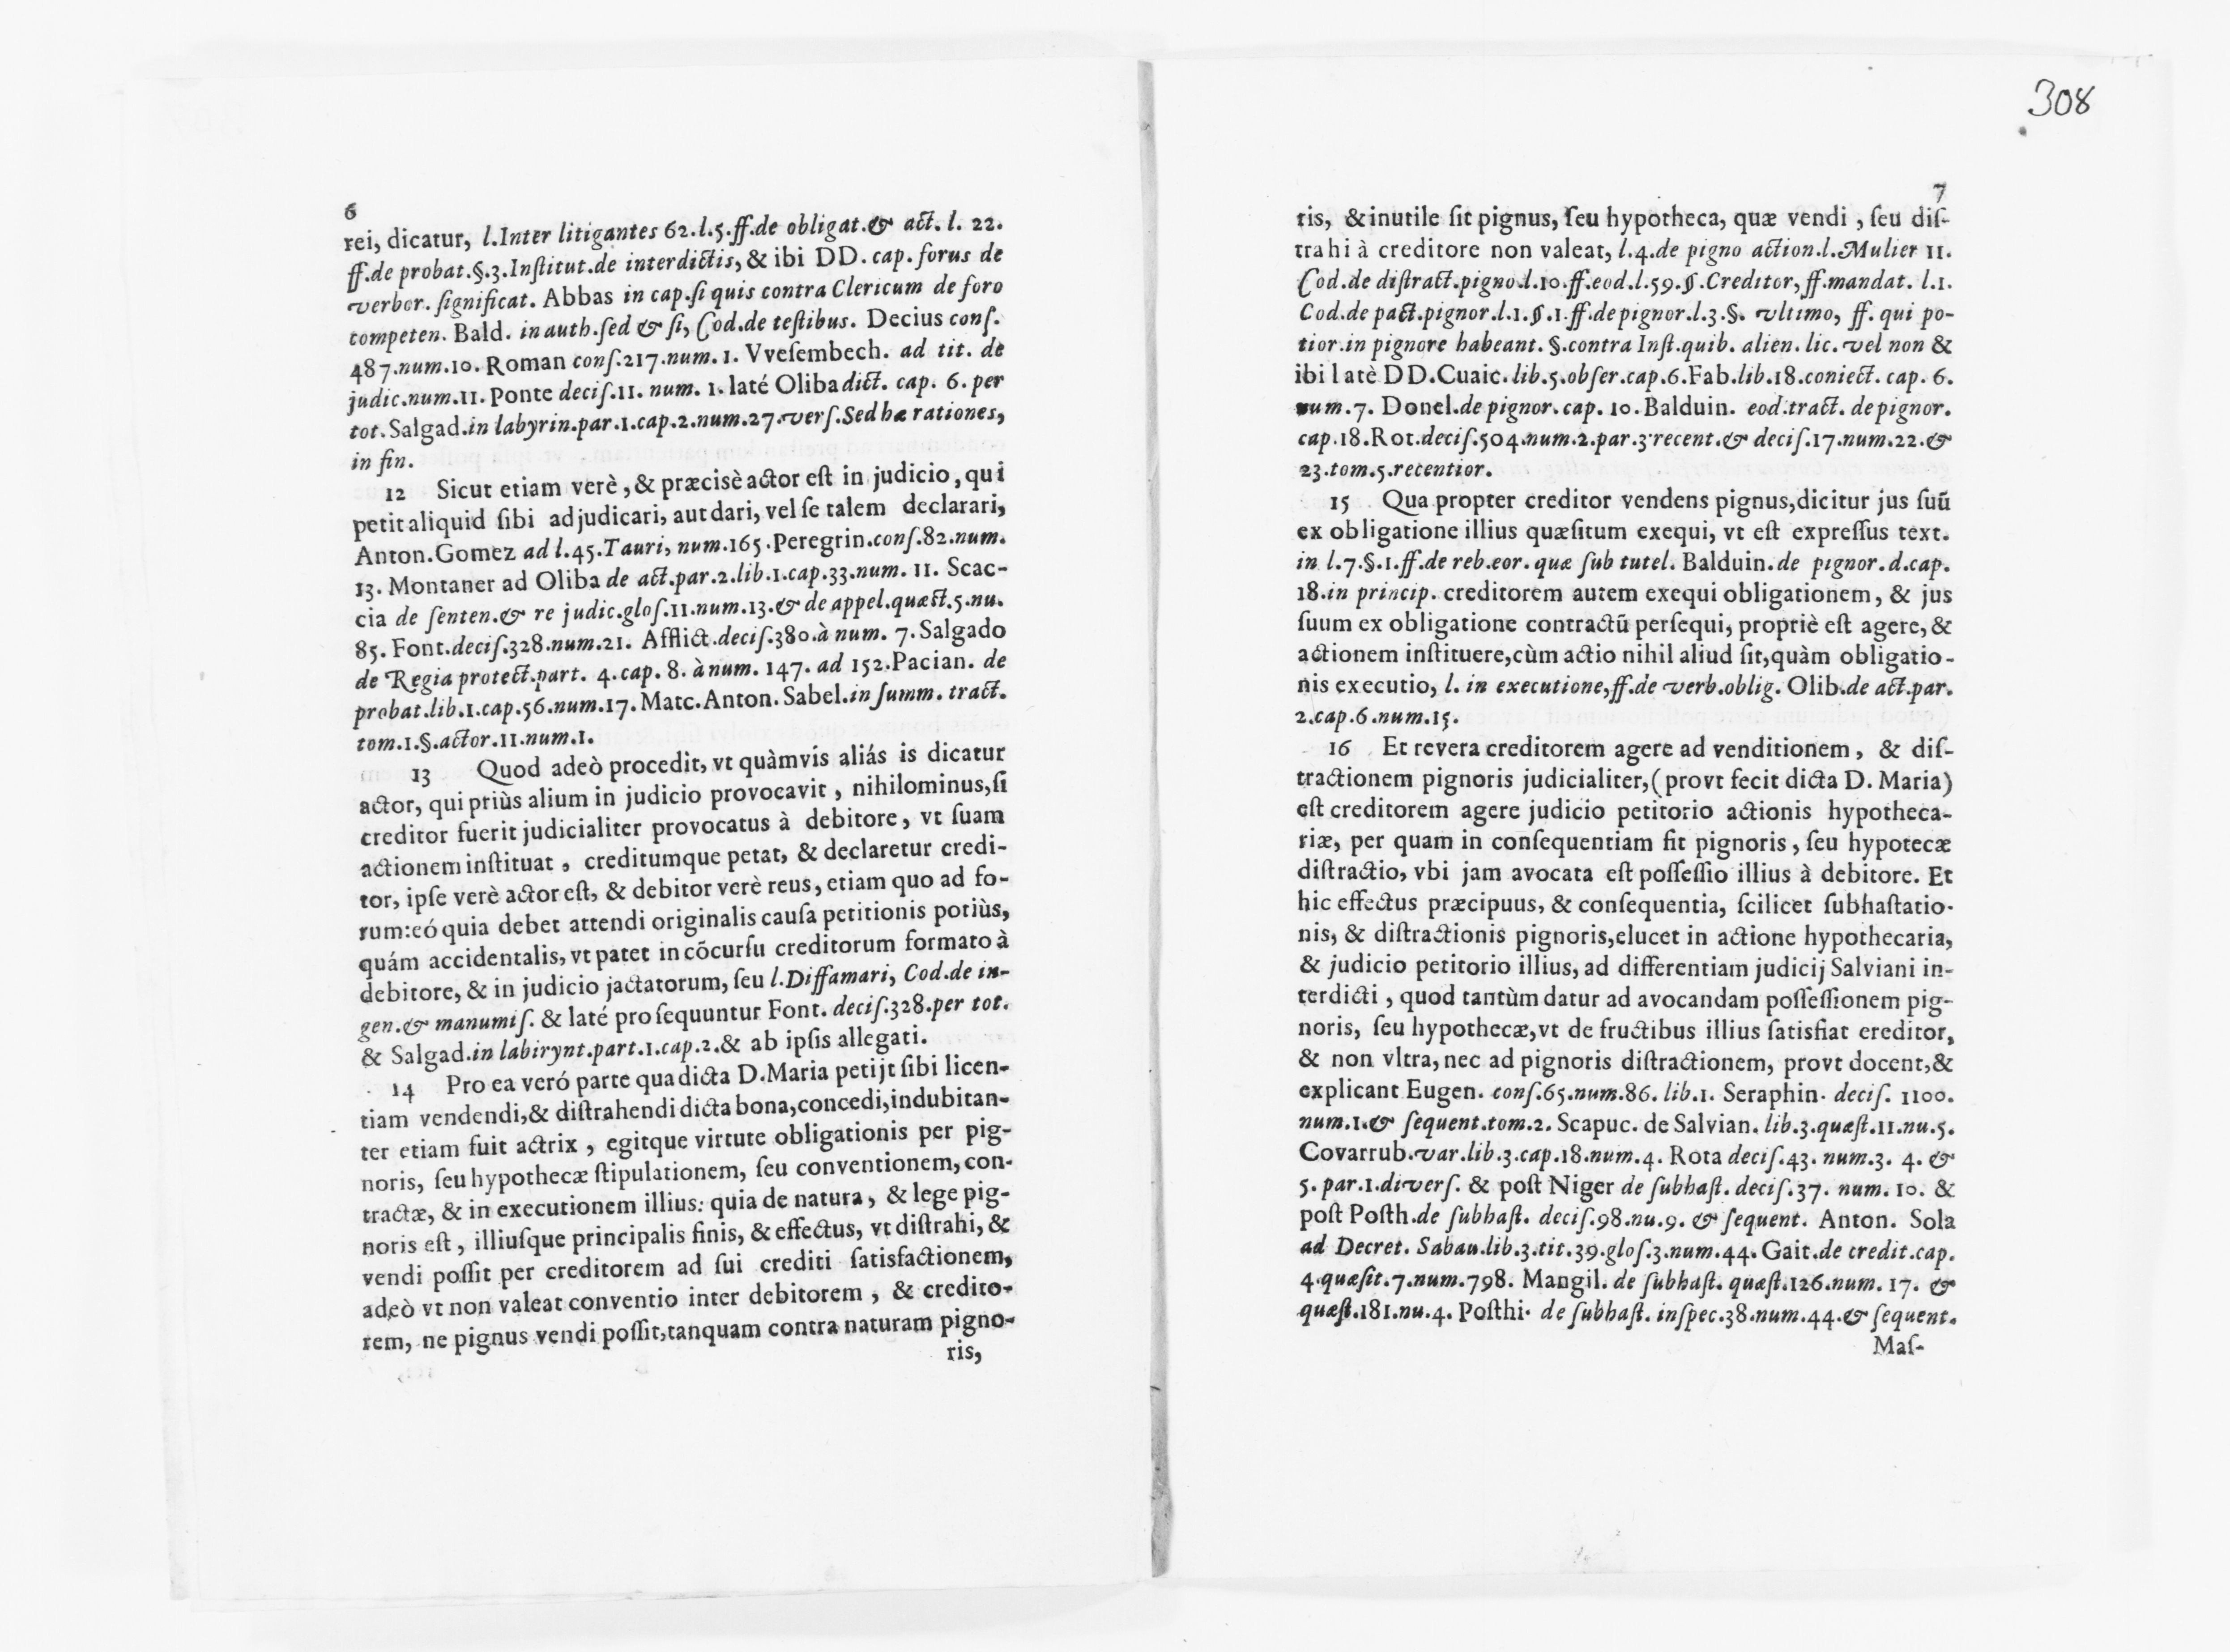 6
rei, dicatur, l.Inter litigantes 62.l.5.ff.de obligat.& act. l. 22.
ff.de probat.§.3.Inſtitut.de interdictis, & ibi DD. cap. forus de
verbor. ſignificat. Abbas in cap.ſi quis contra Clericum de foro
competen. Bald. in auth.ſed & ſi, Cod.de teſtibus. Decius conſ.
487.num.10. Roman conſ.217.num. 1. Vveſembech. ad tit. de
judic.num.11. Ponte deciſ.11. num. 1. laté Oliba dict. cap. 6. per
tot. Salgad.in labyrin.par.1.cap.2.num.27.verſ.Sed hæ rationes,
in fin.
12 Sicut etiam verè, & præcisè actor eſt in judicio, qui
petit aliquid ſibi adjudicari, aut dari, vel ſe talem declarari,
Anton.Gomez ad l.45.Tauri, num.165.Peregrin.conſ.82.num.
13. Montaner ad Oliba de act.par.2.lib.1.cap.33.num. 11. Scac-
cia de ſenten.& re judic.gloſ.11.num.13.& de appel.quæſt.5.nu.
85. Font.deciſ.328.num.21. Afflict.deciſ.380.à num. 7. Salgado
de Regia protect.part. 4. cap. 8. à num. 147. ad 152.Pacian. de
probat.lib.1.cap.56.num.17. Matc.Anton. Sabel.in ſumm. tract.
tom.1.§.actor.11.num.1.
13 Quod adeò procedit, vt quàmvís aliás is dicatur
actor, qui priùs alium in judicio provocavit, nihilominus, ſi
creditor fuerit judicialiter provocatus à debitore, vt ſuam
actionem inſtituat, creditumque petat, & declaretur credi-
tor, ipſe verè actor eſt, & debitor verè reus, etiam quo ad fo-
rum: eó quia debet attendi originalis cauſa petitionis potiùs,
quám accidentalis, vt patet in cõcurſu creditorum formato à
debitore, & in judicio jactatorum, ſeu l.Diffamari, Cod.de in-
gen.& manumiſ. & laté proſequuntur Font. deciſ.328.per tot.
& Salgad.in labirynt.part.1.cap.2.& ab ipſis allegati.
14 Pro ea veró parte qua dicta D.Maria petijt ſibi licen-
tiam vendendi, & diſtrahendi dicta bona, concedi, indubitan-
ter etiam fuit actrix, egitque virtute obligationis per pig-
noris, ſeu hypothecæ ſtipulationem, ſeu conventionem, con-
tractæ, & in executionem illius: quia de natura, & lege pig-
noris eſt, illiuſque principalis finis, & effectus, vt diſtrahi, &
vendi poſſit per creditorem ad ſui crediti ſatisfactionem,
adeò vt non valeat conventio inter debitorem, & credito-
rem, ne pignus vendi poſſit, tanquam contra naturam pigno-
ris,
308
7
ris, & inutile ſit pignus, ſeu hypotheca, quæ vendi, ſeu diſ-
trahi à creditore non valeat, l.4.de pigno action.l.Mulier 11.
Cod.de diſtract.pigno.l.10.ff.eod.l.59.§.Creditor, ff.mandat. l.1.
Cod.de pact.pignor.l.1.§.1.ff.de pignor.l.3.§. vltimo, ff. qui po-
tior.in pignore habeant. §.contra Inſt.quib. alien. lic. vel non &
ibi latè DD.Cuaic.lib.5.obſer.cap.6.Fab.lib.18.coniect. cap. 6.
num.7. Donel.de pignor.cap. 10.Balduin. eod.tract. de pignor.
cap.18.Rot.deciſ.504.num.2.par.3.recent.& deciſ.17.num.22.&
23.tom.5.recentior.
15 Qua propter creditor vendens pignus, dicitur jus ſuũ
ex obligatione illius quæſitum exequi, vt eſt expreſſus text.
in l.7.§.1.ff.de reb.eor.quæ ſub tutel. Balduin.de pignor.d.cap.
18.in princip. creditorem autem exequi obligationem, & jus
ſuum ex obligatione contractũ perſequi, propriè eſt agere, &
actionem inſtituere, cùm actio nihil aliud ſit, quàm obligatio-
nis executio, l. in executione, ff.de verb.oblig. Olib.de act.par.
2.cap.6.num.15.
16 Et revera creditorem agere ad venditionem, & diſ-
tractionem pignoris judicialiter, (provt fecit dicta D. Maria)
eſt creditorem agere judicio petitorio actionis hypotheca-
riæ, per quam in conſequentiam fit pignoris, ſeu hypotecæ
diſtractio, vbi jam avocata eſt poſſeſſio illius à debitore. Et
hic effectus præcipuus, & conſequentia, ſcilicet ſubhaſtatio-
nis, & diſtractionis pignoris, elucet in actione hypothecaria,
& judicio petitorio illius, ad differentiam judicij Salviani in-
terdicti, quod tantùm datur ad avocandam poſſeſſionem pig-
noris, ſeu hypothecæ, vt de fructibus illius ſatisfiat ereditor,
& non vltra, nec ad pignoris diſtractionem, provt docent, &
explicant Eugen. conſ.65.num.86. lib.1. Seraphin. deciſ. 1100.
num.1.& ſequent.tom.2. Scapuc. de Salvian. lib.3.quæſt.11.nu.5.
Covarrub.var.lib.3.cap.18.num.4. Rota deciſ.43. num.3. 4. &
5. par.1.diverſ. & poſt Niger de ſubhaſt. deciſ.37. num. 10. &
poſt Poſth.de ſubhaſt. deciſ.98.nu.9. & ſequent. Anton. Sola
ad Decret. Sabau.lib.3.tit.39.gloſ.3.num.44. Gait.de credit.cap.
4.quæſit.7.num.798. Mangil. de ſubhaſt. quæſt.126.num. 17. &
quæſt.181.nu.4. Poſthi. de ſubhaſt. inſpec.38.num.44.& ſequent.
Maſ-